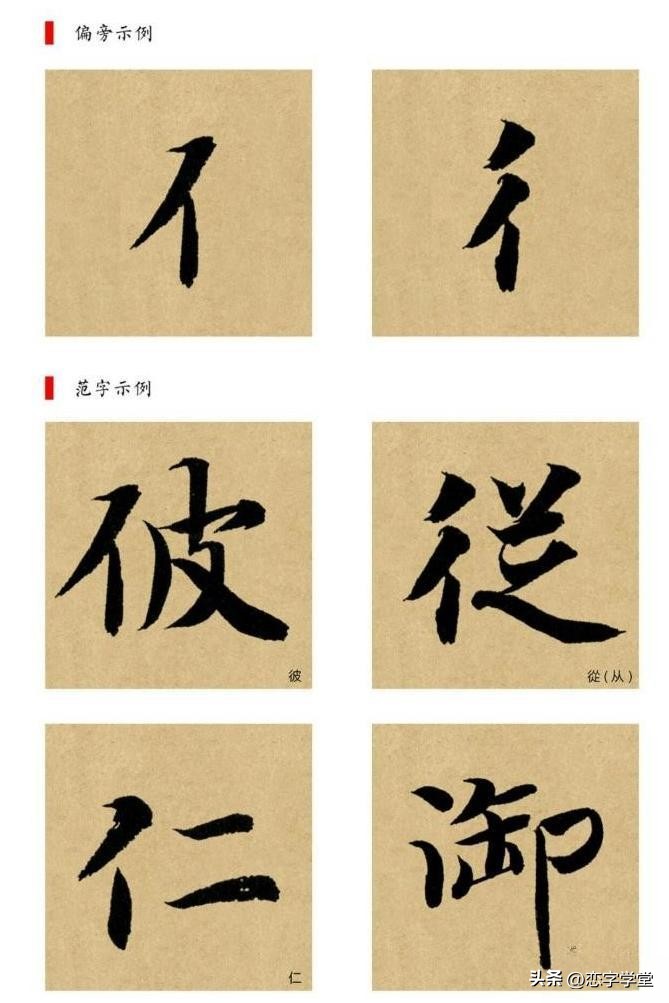 偏旁示例
亻 彳
范字示例
彼 從
彼 從(从)
仁 御
仁
头条 @恋字学堂